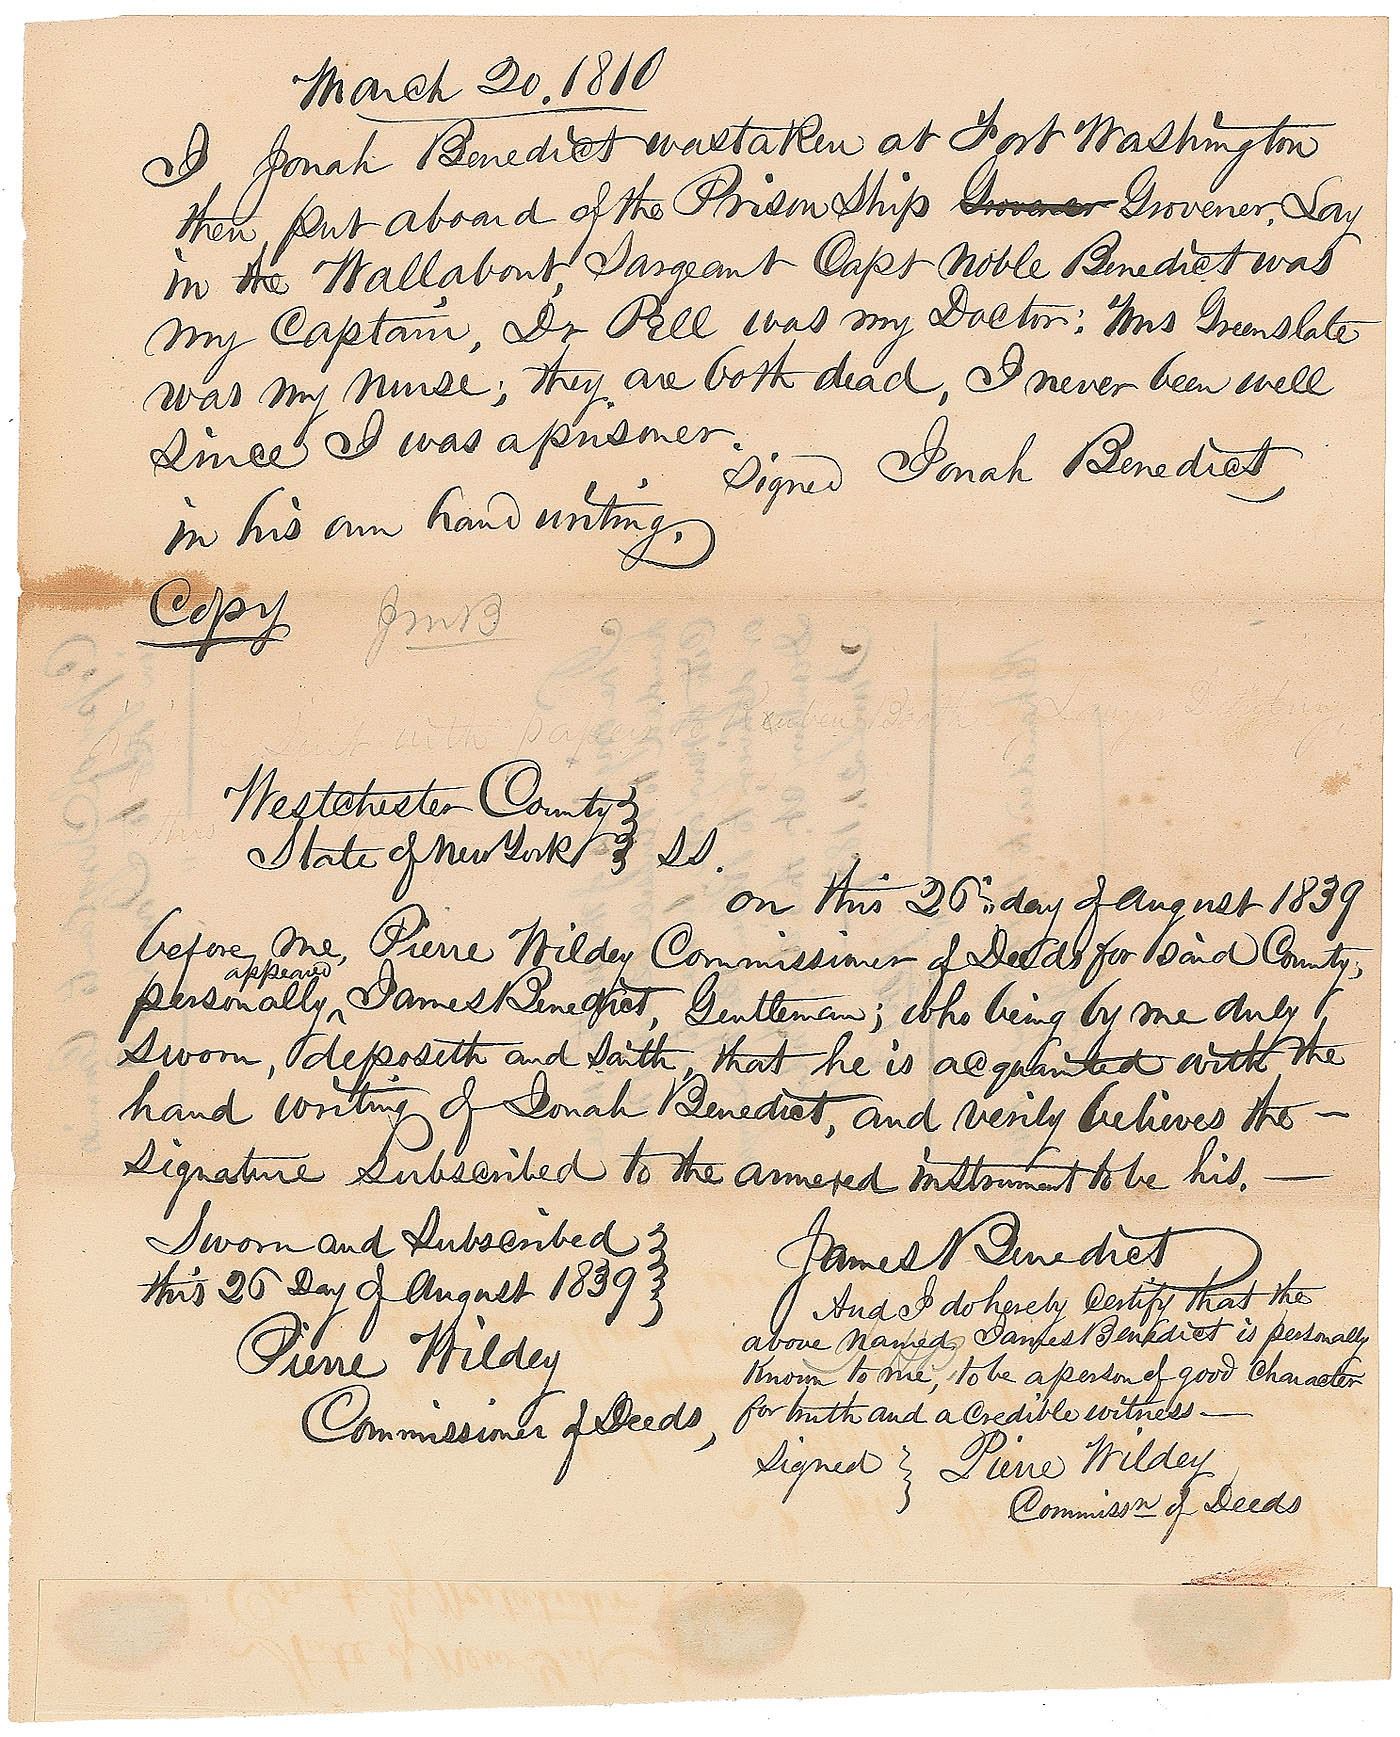 March 20. 1810
I Jonah Benedict was taken at Fort Washington
then put aboard of the Prison Ship Grovener Grovener, Lay
in the Wallabout, Sargeant Capt Noble Benedict was
my Captain, Dr Pell was my Doctor; Mrs Greenslate
was my nurse; they are both dead, I never been well
since I was a prisoner.
Signed Jonah Benedict,
in his own hand writing.
Copy JMB
Sent with papers to Reuben Booth Danbury
Westchester County }
State of New York } SS.
on this 26th day of August 1839
before me, Pierre Wildey Commissioner of Deeds for said County,
appeared
personally ^ James Benedict, Gentleman; who being by me duly
sworn, deposeth and saith, that he is acquainted with the
hand writing of Jonah Benedict, and verily believes the —
signature subscribed to the annexed instrument to be his. —
Sworn and Subscribed }
this 26 Day of August 1839 }
Pierre Wildey
Commissioner of Deeds,
James Benedict
And I do hereby certify that the
above named James Benedict is personally
known to me, to be a person of good character
for truth and a credible witness —
Signed } Pierre Wildey
Commissn of Deeds